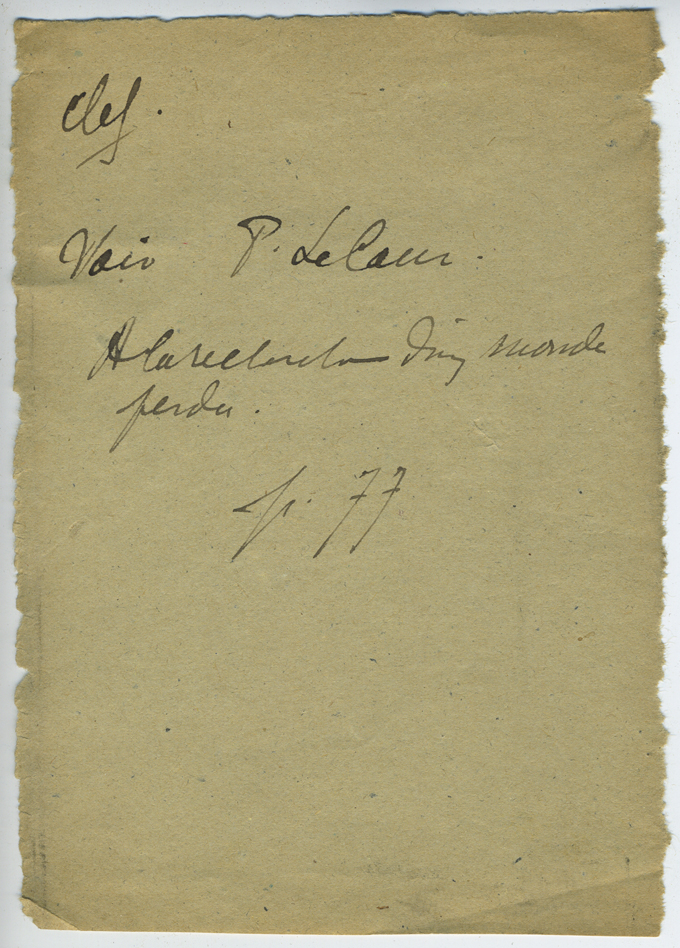 Clef.
Voir P. LeCour.
A la recherche d'un monde
perdu.
p. 77